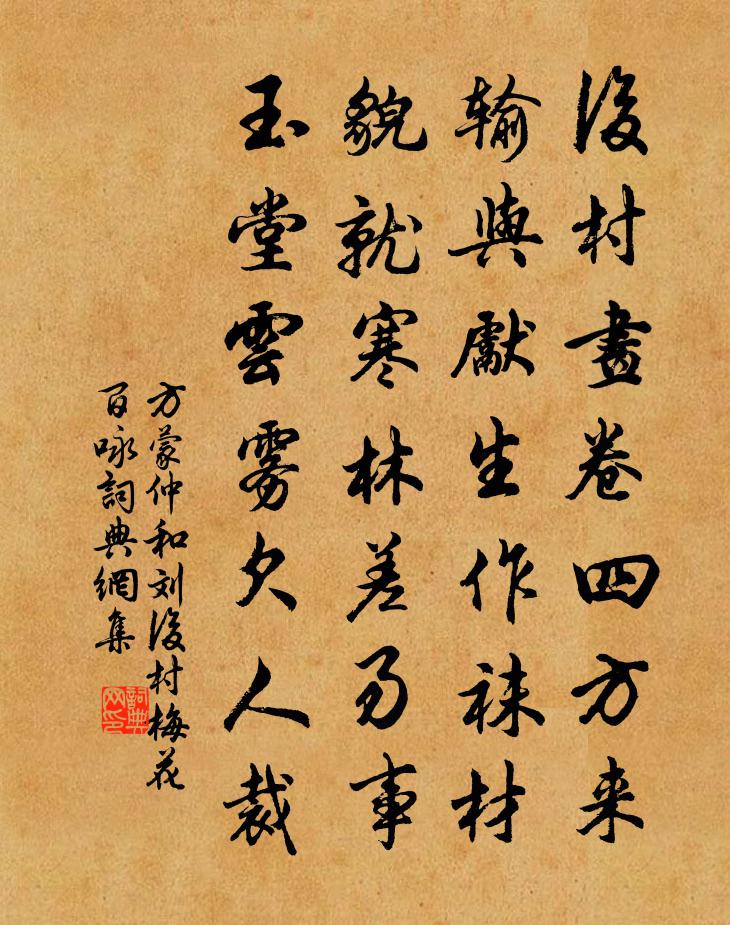 後村畫卷四方来
输與獻生作袜材
貌就寒林差易事
玉堂雲雾欠人裁
方蒙仲和刘後村梅花
百咏詞典網集
詞典
网印